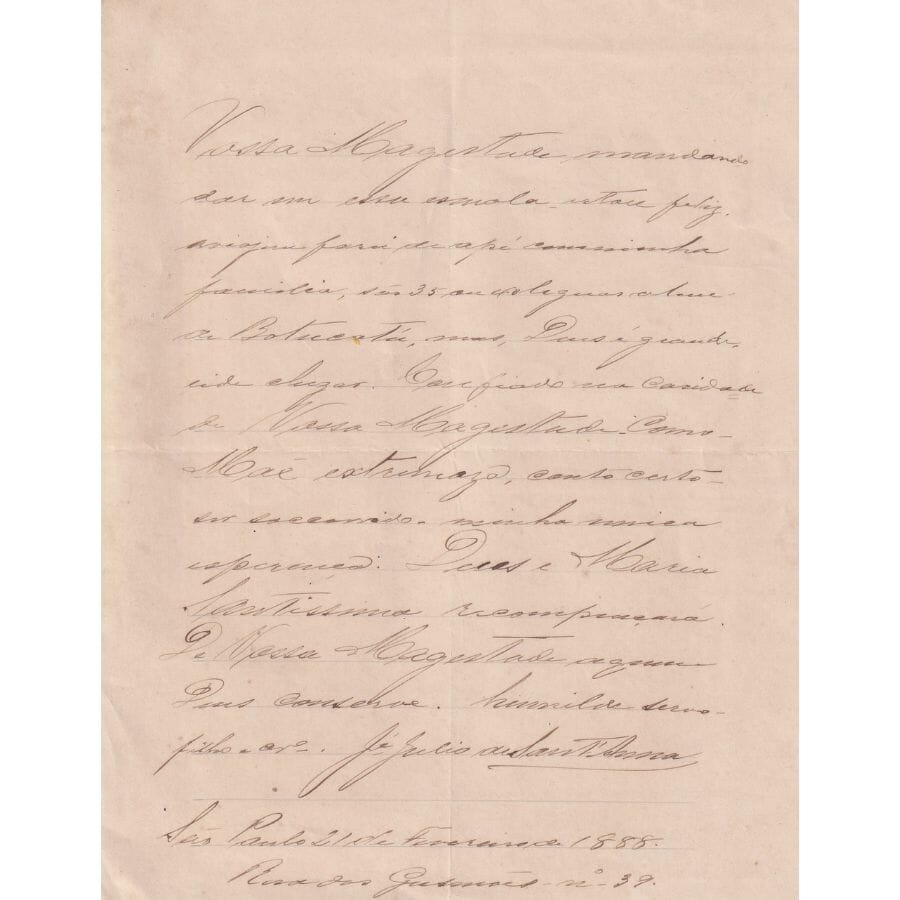 Vossa Magestade, mandando
dar me essa esmola estou feliz,
a viajem farei de apé com minha
familia, são 35 ou leguas alem
de Botucatú, mas, Deus é grande,
eide chegar. Confiado na Caridade
de Vossa Magestade. Como
Maẽ extremoza, conto certo
ser soccorrido. minha unica
esperança. Deus e Maria
Santissima recompençará.
De Vossa Magestade aquem
Deus conserve. humilde servo
filho e crº. Jé Julio de Sant'Anna
São Paulo 21 de Fevereiro de 1888.
Rua dos Gusmões nº 39.